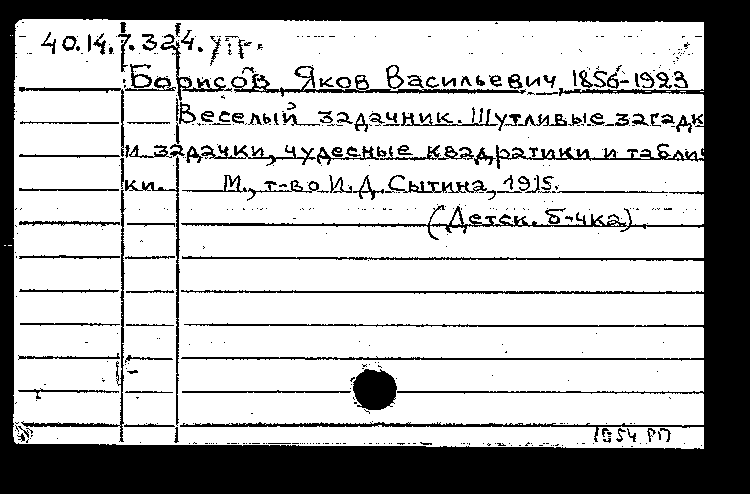 40.14.7.324. утр.
Борисов, Яков Васильевич, 1856-1923
Веселый задачник. Шутливые загадк
и задачки, чудесные квадратики и таблич
ки. М., т-во И. Д. Сытина, 1915.
(Детск. б-чка).
1954 РП